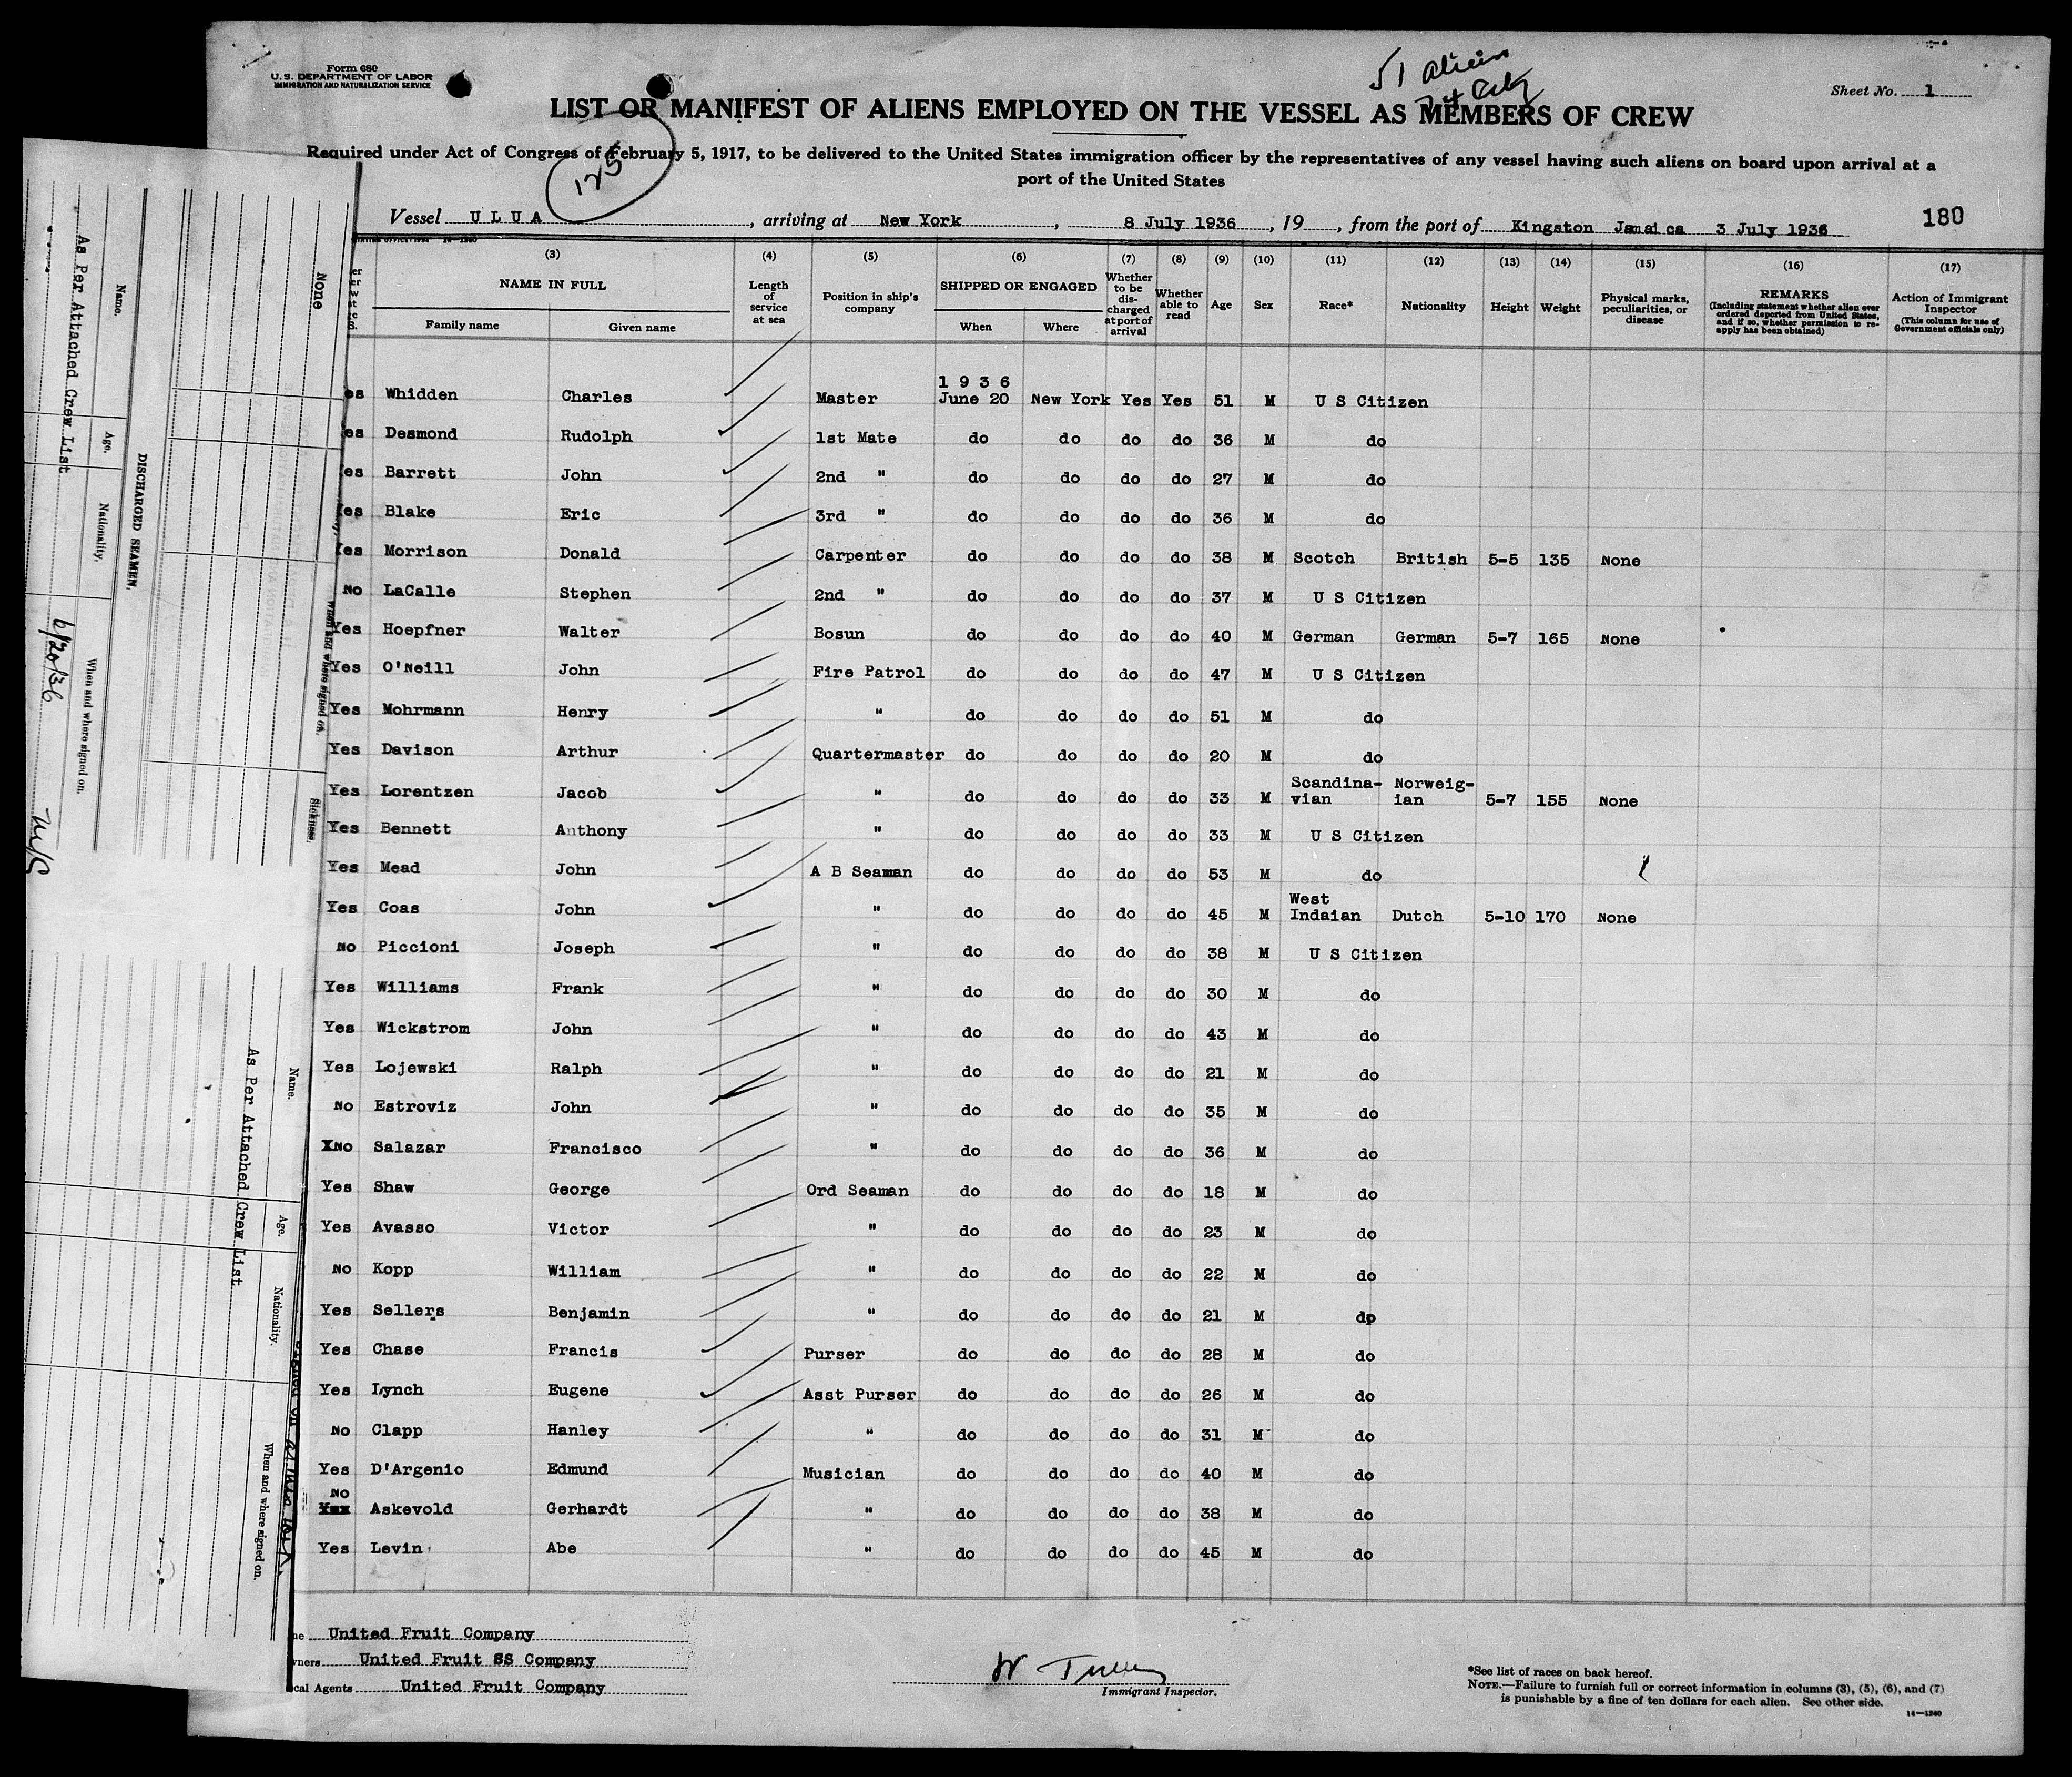 Form 680
U. S. DEPARTMENT OF LABOR
IMMIGRATION AND NATURALIZATION SERVICE
51 aliens
Sheet No. 1
LIST OR MANIFEST OF ALIENS EMPLOYED ON THE VESSEL AS MEMBERS OF CREW
125
Required under Act of Congress of February 5, 1917, to be delivered to the United States immigration officer by the representatives of any vessel having such aliens on board upon arrival at a
port of the United States
Vessel U L U A , arriving at New York , 8 July 1936 , 19 , from the port of Kingston Jamaica 3 July 1936
180
(3) (4) (5) (6) (7) (8) (9) (10) (11) (12) (13) (14) (15) (16) (17)
NAME IN FULL
Family name Given name
Length of service at sea
Position in ship's company
SHIPPED OR ENGAGED
When Where
Whether to be discharged at port of arrival
Whether able to read
Age
Sex
Race*
Nationality
Height
Weight
Physical marks, peculiarities, or disease
REMARKS
(Including statement whether alien ever ordered deported from United States, and if so, whether permission to re-apply has been obtained)
Action of Immigrant Inspector
(This column for use of Government officials only)
es Whidden Charles Master 1 9 3 6 June 20 New York Yes Yes 51 M U S Citizen
es Desmond Rudolph 1st Mate do do do do 36 M do
es Barrett John 2nd " do do do do 27 M do
es Blake Eric 3rd " do do do do 36 M do
Yes Morrison Donald Carpenter do do do do 38 M Scotch British 5-5 135 None
No LaCalle Stephen 2nd " do do do do 37 M U S Citizen
Yes Hoepfner Walter Bosun do do do do 40 M German German 5-7 165 None
Yes O'Neill John Fire Patrol do do do do 47 M U S Citizen
Yes Mohrmann Henry " do do do do 51 M do
Yes Davison Arthur Quartermaster do do do do 20 M do
Yes Lorentzen Jacob " do do do do 33 M Scandina-vian Norweig-ian 5-7 155 None
Yes Bennett Anthony " do do do do 33 M U S Citizen
Yes Mead John A B Seaman do do do do 53 M do
Yes Coas John " do do do do 45 M West Indaian Dutch 5-10 170 None
No Piccioni Joseph " do do do do 38 M U S Citizen
Yes Williams Frank " do do do do 30 M do
Yes Wickstrom John " do do do do 43 M do
Yes Lojewski Ralph " do do do do 21 M do
No Estroviz John " do do do do 35 M do
XNo Salazar Francisco " do do do do 36 M do
Yes Shaw George Ord Seaman do do do do 18 M do
Yes Avasso Victor " do do do do 23 M do
No Kopp William " do do do do 22 M do
Yes Sellers Benjamin " do do do do 21 M do
Yes Chase Francis Purser do do do do 28 M do
Yes Lynch Eugene Asst Purser do do do do 26 M do
No Clapp Hanley " do do do do 31 M do
Yes D'Argenio Edmund Musician do do do do 40 M do
No Askevold Gerhardt " do do do do 38 M do
Yes Levin Abe " do do do do 45 M do
United Fruit Company
United Fruit SS Company
cal Agents United Fruit Company
Immigrant Inspector.
*See list of races on back hereof.
NOTE.—Failure to furnish full or correct information in columns (3), (5), (6), and (7)
is punishable by a fine of ten dollars for each alien. See other side.
14—1240
None
Sickness.
When and where signed on.
DISCHARGED SEAMEN.
Name. Age. Nationality. When and where signed on.
As Per Attached Crew List
6/20/36
Name. Age. Nationality. When and where signed on.
As Per Attached Crew List